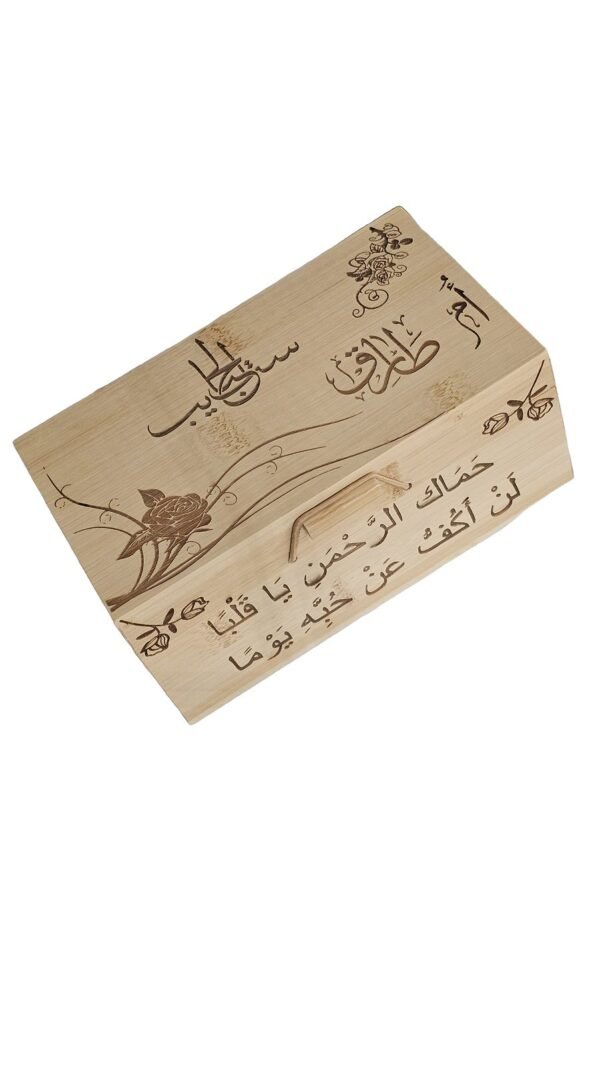 أم
طارق
ست الحبايب
حَمَاكَ الرَّحْمَنِ يَا قَلْبًا
لَنْ أَكُفُّ عَنْ حُبِّهِ يَوْمًا